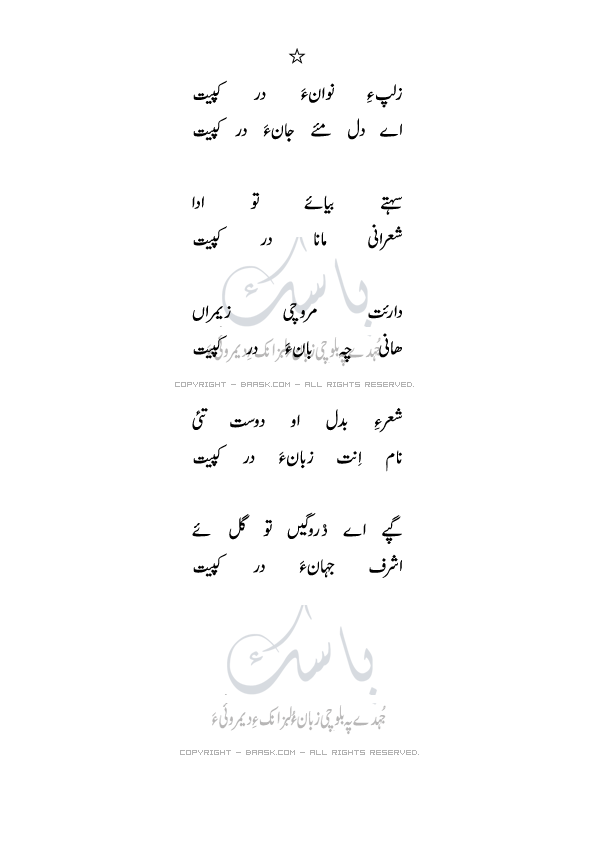 ☆
زلپءِ نوانءَ در کپیت
اے دل مئے جانءَ در کپیت
سہتے بیائے تو ادا
شعرانی مانا در کپیت
دارئت مروچی زیمراں
ھانی چہ بانءَ در کپیت
باسکء
جُہدے پہ بلوچی زبانءُ لبزانکءِ دیمروئیءَ
COPYRIGHT - BAASK.COM - ALL RIGHTS RESERVED.
شعرءِ بدل او دوست تئی
نام اِنت زبانءَ در کپیت
گپے اے دروگیں تو گل ئے
اشرف جہانءَ در کپیت
باسکء
جُہدے پہ بلوچی زبانءُ لبزانکءِ دیمروئیءَ
COPYRIGHT - BAASK.COM - ALL RIGHTS RESERVED.